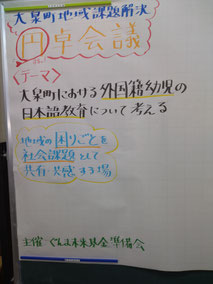 大泉町地域課題解決
円卓会議
〈テーマ〉
大泉町における外国籍幼児の
日本語教育について考える
地域の困りごとを
社会課題として
共有・共感する場
主催 ぐんま未来基金準備会